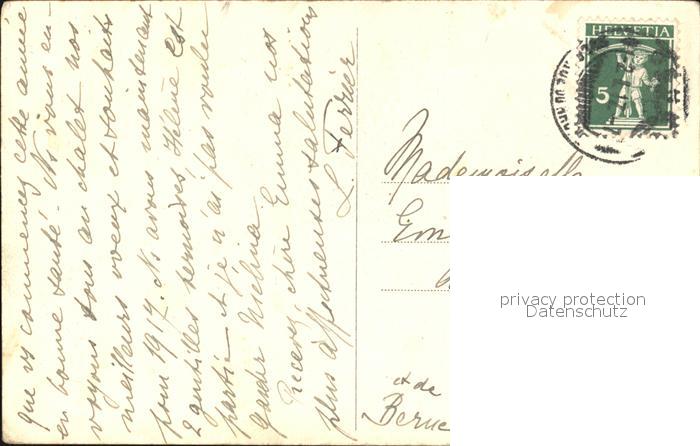 que vs commencez cette année
en bonne santé. Ns vous en-
voyons tous au chalet nos
meilleurs voeux et souhaits
pour 1917. Ns avons maintenant
2 gentilles Hélène est
partie et je n'ai pas voulu
garder Mélina.
Recevez, chère Emma nos
plus affectueuses salutations
L. Ferrier
HELVETIA
5
Mademoiselle
Em
et de
Berne
privacy protection
Datenschutz